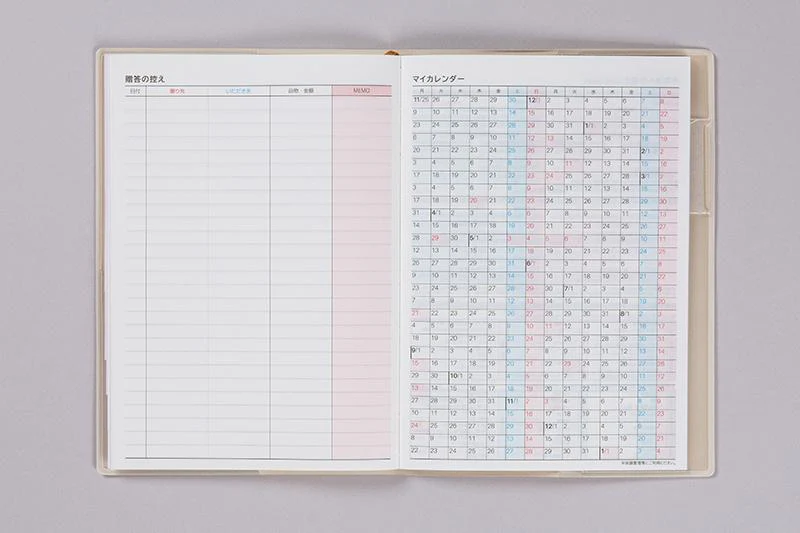 贈答の控え
日付 贈り先 いただき先 品物・金額 MEMO
マイカレンダー
月 火 水 木 金 土 日 月 火 水 木 金 土 日
11/25 26 27 28 29 30 12/1 2 3 4 5 6 7 8
9 10 11 12 13 14 15 16 17 18 19 20 21 22
23 24 25 26 27 28 29 30 31 1/1 2 3 4 5
6 7 8 9 10 11 12 13 14 15 16 17 18 19
20 21 22 23 24 25 26 27 28 29 30 31 2/1 2
3 4 5 6 7 8 9 10 11 12 13 14 15 16
17 18 19 20 21 22 23 24 25 26 27 28 3/1 2
3 4 5 6 7 8 9 10 11 12 13 14 15 16
17 18 19 20 21 22 23 24 25 26 27 28 29 30
31 4/1 2 3 4 5 6 7 8 9 10 11 12 13
14 15 16 17 18 19 20 21 22 23 24 25 26 27
28 29 30 5/1 2 3 4 5 6 7 8 9 10 11
12 13 14 15 16 17 18 19 20 21 22 23 24 25
26 27 28 29 30 31 6/1 2 3 4 5 6 7 8
9 10 11 12 13 14 15 16 17 18 19 20 21 22
23 24 25 26 27 28 29 30 7/1 2 3 4 5 6
7 8 9 10 11 12 13 14 15 16 17 18 19 20
21 22 23 24 25 26 27 28 29 30 31 8/1 2 3
4 5 6 7 8 9 10 11 12 13 14 15 16 17
18 19 20 21 22 23 24 25 26 27 28 29 30 31
9/1 2 3 4 5 6 7 8 9 10 11 12 13 14
15 16 17 18 19 20 21 22 23 24 25 26 27 28
29 30 10/1 2 3 4 5 6 7 8 9 10 11 12
13 14 15 16 17 18 19 20 21 22 23 24 25 26
27 28 29 30 31 11/1 2 3 4 5 6 7 8 9
10 11 12 13 14 15 16 17 18 19 20 21 22 23
24 25 26 27 28 29 30 12/1 2 3 4 5 6 7
8 9 10 11 12 13 14 15 16 17 18 19 20 21
22 23 24 25 26 27 28 29 30 31 1/1 2 3 4
※体調管理等にご利用ください。